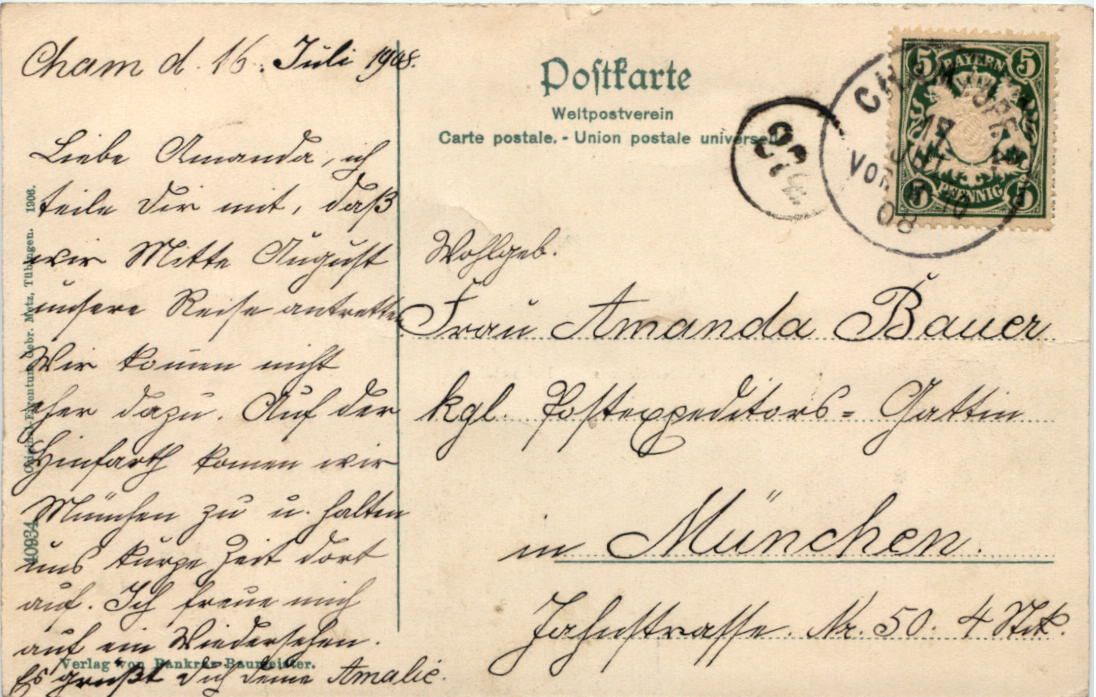 Cham d. 16. Juli 1908.
Liebe Amanda, ich
teile Dir mit, daß
wir Mitte August
unsere Reise antretten
Wir komen nicht
eher dazu. Auf der
Hinfarth komen wir
München zu u. halten
uns kurze Zeit dort
auf. Ich freue mich
auf ein Wiedersehen.
Es grüßt Dich deine Amalie.
Verlag von Pankraz Baumeister.
40934 Original-Eigentum Gebr. Metz, Tübingen. 1906.
Postkarte
Weltpostverein
Carte postale. - Union postale universelle
5 BAYERN 5
5 PFENNIG 5
CHAM
VOR
08
Wohlgeb.
Frau Amanda Bauer
kgl. Postexpeditors= Gattin
in München.
Jahnstrasse. Nr. 50. 4 Stk.